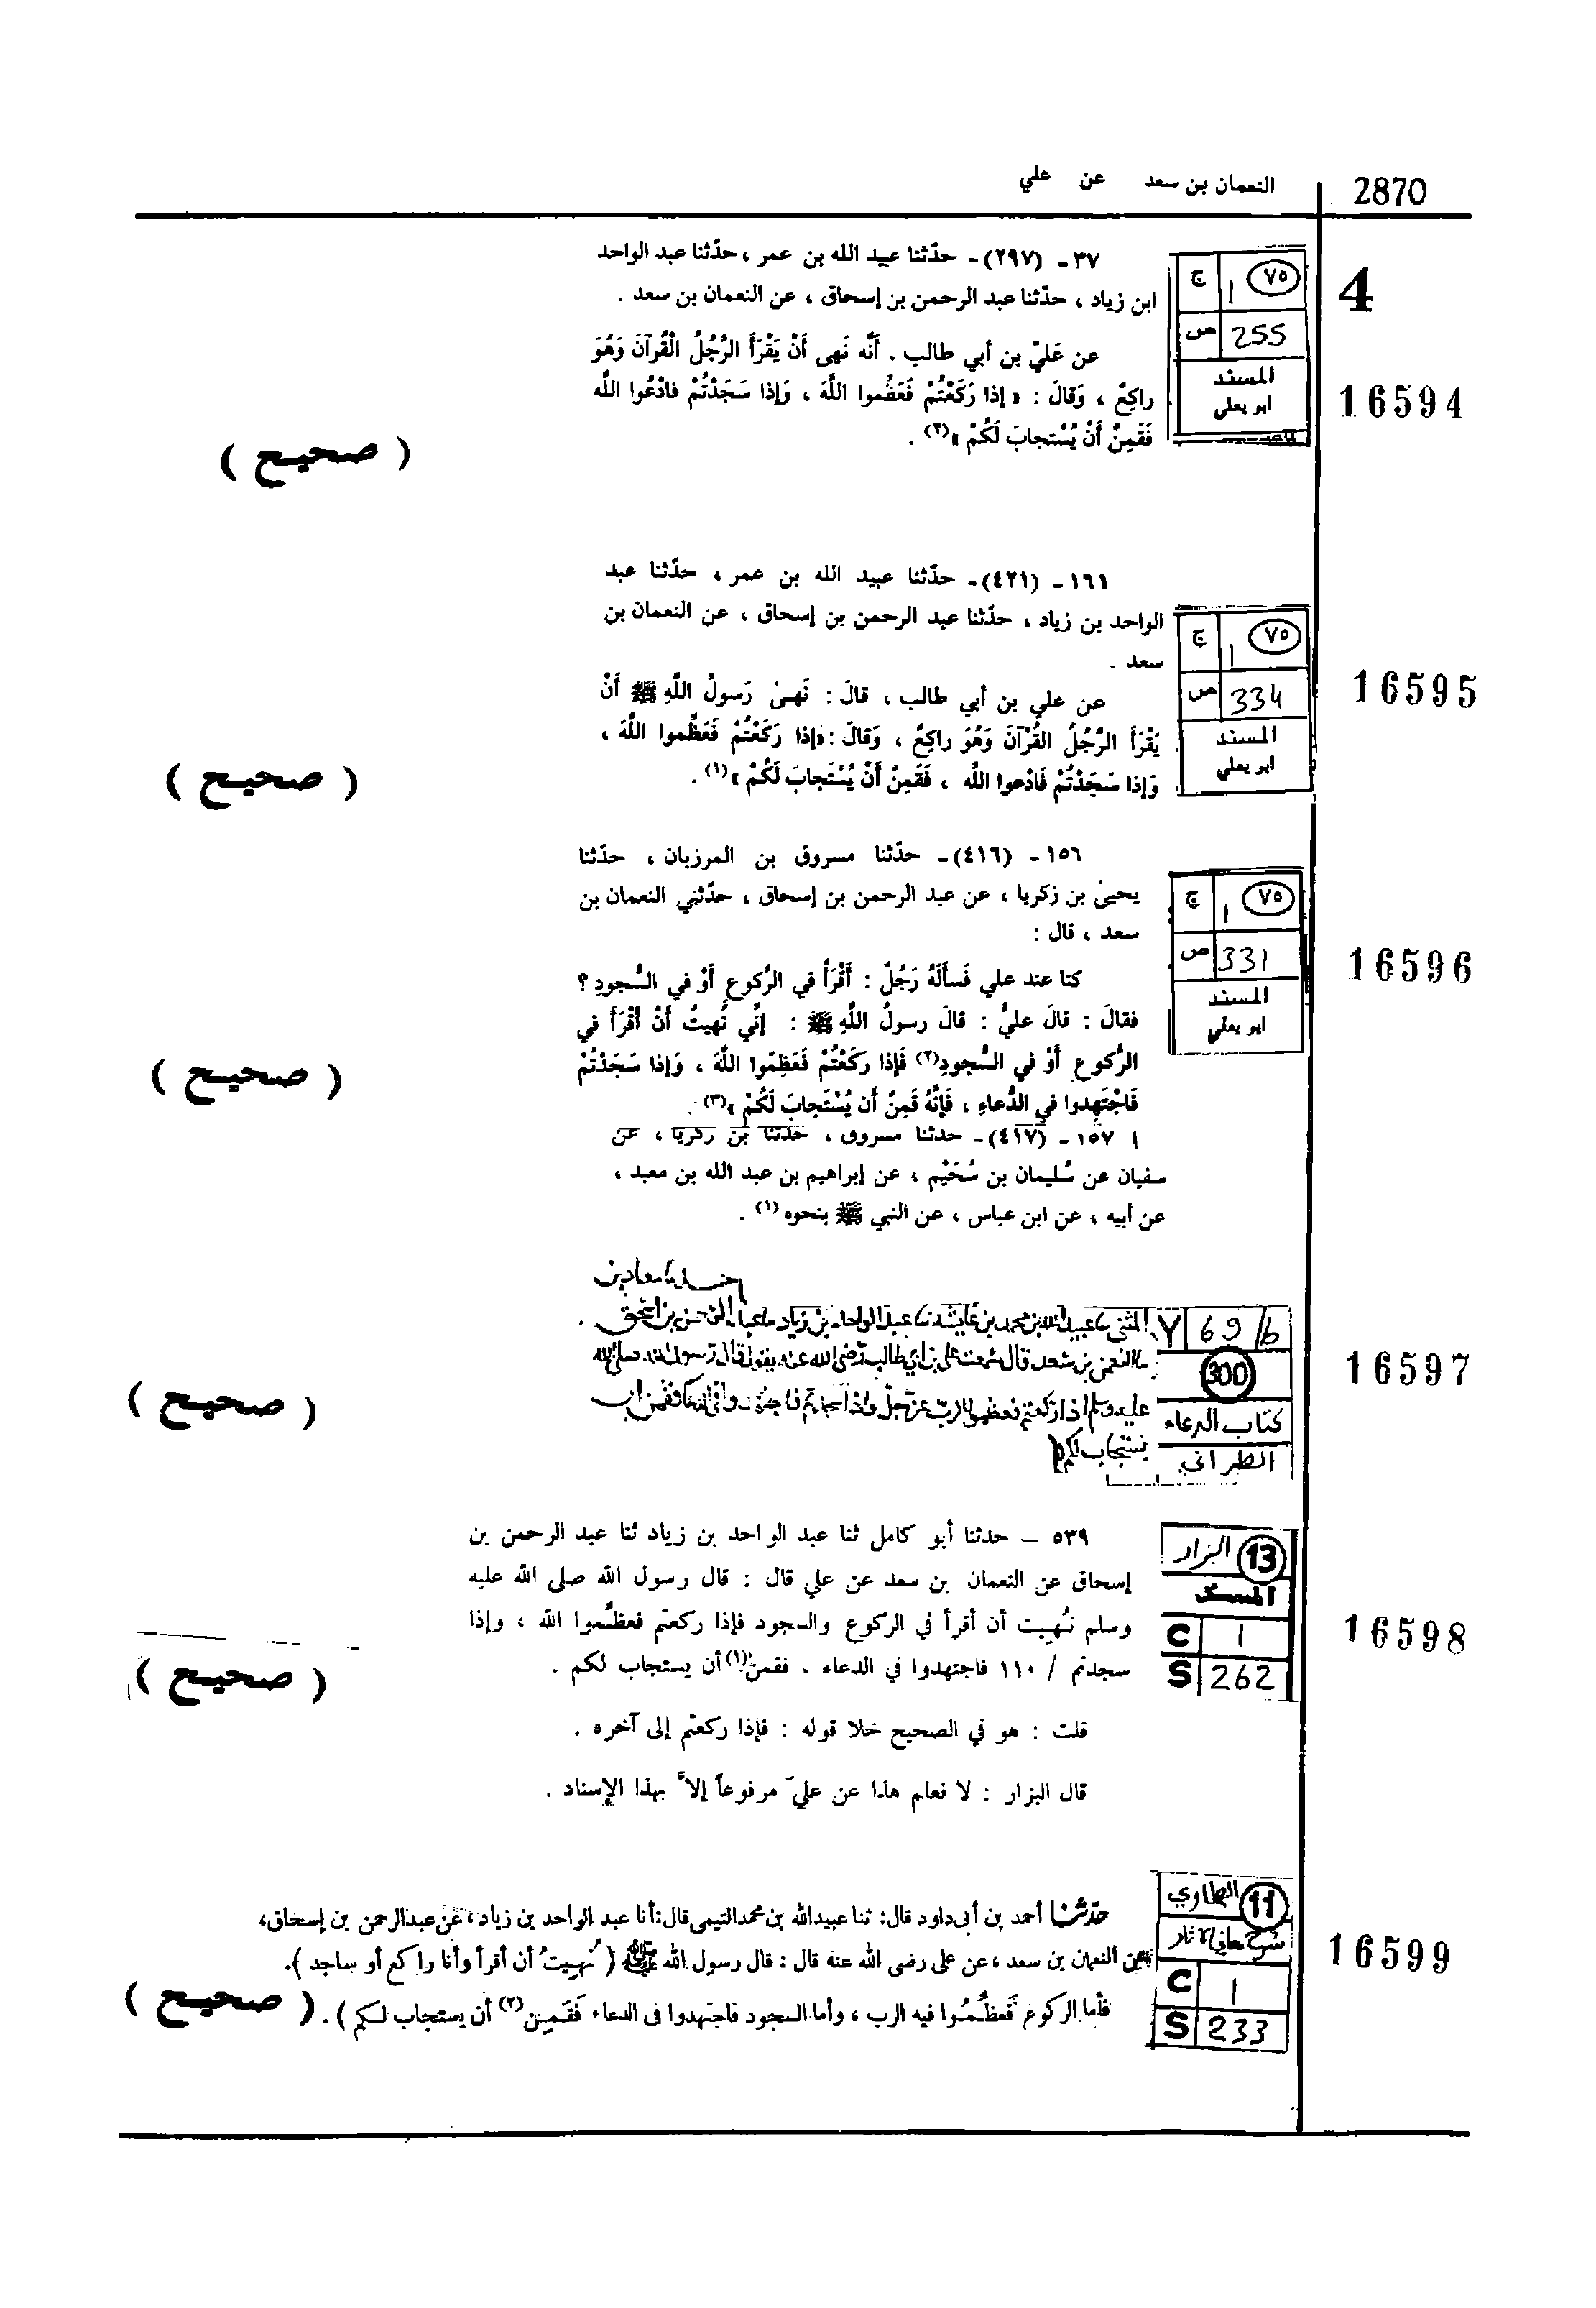 2870
النعمان بن سعد عن علي
4
16594
٧٥ ١ ج
255 ص
المسند
ابو يعلي
٣٧ - (٢٩٧) - حدّثنا عبيد الله بن عمر ، حدّثنا عبد الواحد
ابن زياد ، حدّثنا عبد الرحمن بن إسحاق ، عن النعمان بن سعد .
عن عَليّ بن أبي طالب . أَنَّه نَهى أَنْ يَقْرَأَ الرَّجُلُ الْقُرآنَ وَهُوَ
راكِعٌ ، وَقالَ : « إذا رَكَعْتُمْ فَعَظِّموا اللَّهَ ، وَإذا سَجَدْتُمْ فادْعُوا اللَّه
فَقَمِنٌ أَنْ يُسْتجابَ لَكُمْ »(٢) .
( صحيح )
16595
٧٥ ١ ج
334 ص
المسند
ابو يعلي
١٦١ - (٤٢١) - حدّثنا عبيد الله بن عمر ، حدّثنا عبد
الواحد بن زياد ، حدّثنا عبد الرحمن بن إسحاق ، عن النعمان بن
سعد .
عن علي بن أبي طالب ، قالَ : نَهىٰ رَسولُ اللَّهِ ﷺ أَنْ
يَقْرَأَ الرَّجُلُ القُرْآنَ وَهُوَ راكِعٌ ، وَقالَ : «إذا رَكَعْتُمْ فَعَظِّموا اللَّهَ ،
وَإذا سَجَدْتُمْ فَادْعوا اللَّه ، فَقَمِنٌ أَنْ يُسْتَجابَ لَكُمْ »(١) .
( صحيح )
16596
٧٥ ١ ج
331 ص
المسند
ابو يعلي
١٥٦ - (٤١٦) - حدّثنا مسروق بن المرزبان ، حدّثنا
يحيىٰ بن زكريا ، عن عبد الرحمن بن إسحاق ، حدّثني النعمان بن
سعد ، قال :
كنا عند علي فَسأَلَهُ رَجُلٌ : أَقْرَأُ في الرُّكوعِ أَوْ في السُّجودِ ؟
فقالَ : قالَ عليٌّ : قالَ رسولُ اللَّهِ ﷺ : إنِّي نُهيتُ أَنْ أَقْرَأَ في
الرُّكوعِ أَوْ في السُّجودِ(٢) فَإذا رَكَعْتُمْ فَعَظِمّوا اللَّهَ ، وَإذا سَجَدْتُمْ
فَاجْتَهِدوا في الدُّعاءِ ، فَإِنَّهُ قَمِنٌ أَن يُسْتَجابَ لَكُمْ »(٣) .
( صحيح )
١٥٧ - (٤١٧) - حدثنا مسروق ، حدثنا بن زكريا ، عن
سفيان عن سُليمان بن سُحَيْم ، عن إبراهيم بن عبد الله بن معبد ،
عن أبيه ، عن ابن عباس ، عن النبي ﷺ بنحوه (١) .
16597
69/b
300
كتاب الدعاء
الطبراني
معاذ بن
المثنى عبيد الله بن محمد بن عايشة عبد الواحد بن زياد عبد الرحمن بن اسحق
النعمن بن سعد قال سمعت علي بن ابي طالب رضي الله عنه يقول قال رسول الله صلى الله
عليه وسلم اذا ركعتم فعظموا الرب عز وجل واذا سجدتم فاجتهدوا في الدعا فقمن ان
يستجاب لكم
( صحيح )
16598
13 البزار
المسند
C 1
S 262
٥٣٩ – حدثنا أبو كامل ثنا عبد الواحد بن زياد ثنا عبد الرحمن بن
إسحاق عن النعمان بن سعد عن علي قال : قال رسول الله صلى الله عليه
وسلم نُهِيت أن أقرأ في الركوع والسجود فإذا ركعتم فعظّموا الله ، وإذا
سجدتم / ١١٠ فاجتهدوا في الدعاء . فقمنٌ(١) أن يستجاب لكم .
( صحيح )
قلت : هو في الصحيح خلا قوله : فإذا ركعتم إلى آخره .
قال البزار : لا نعلم هذا عن عليّ مرفوعاً إلاَّ بهذا الإسناد .
16599
11 الطحاوي
شرح معاني الاثار
C 1
S 233
حدّثنا أحمد بن أبى داود قال: ثنا عبيدالله بن محمد التيمى قال: أنا عبد الواحد بن زياد ، عن عبدالرحمن بن إسحاق،
عن النعمان بن سعد ، عن على رضى الله عنه قال : قال رسول الله ﷺ ( نُهِيتُ أن أقرأ وأنا راكع أو ساجد ).
فأما الركوع فَعظِّمُوا فيه الرب ، وأما السجود فاجتهدوا فى الدعاء فَقَمِنٌ (٢) أن يستجاب لكم ) .
( صحيح )